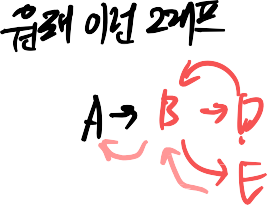 원래 이런 그래프
A → B → D
E